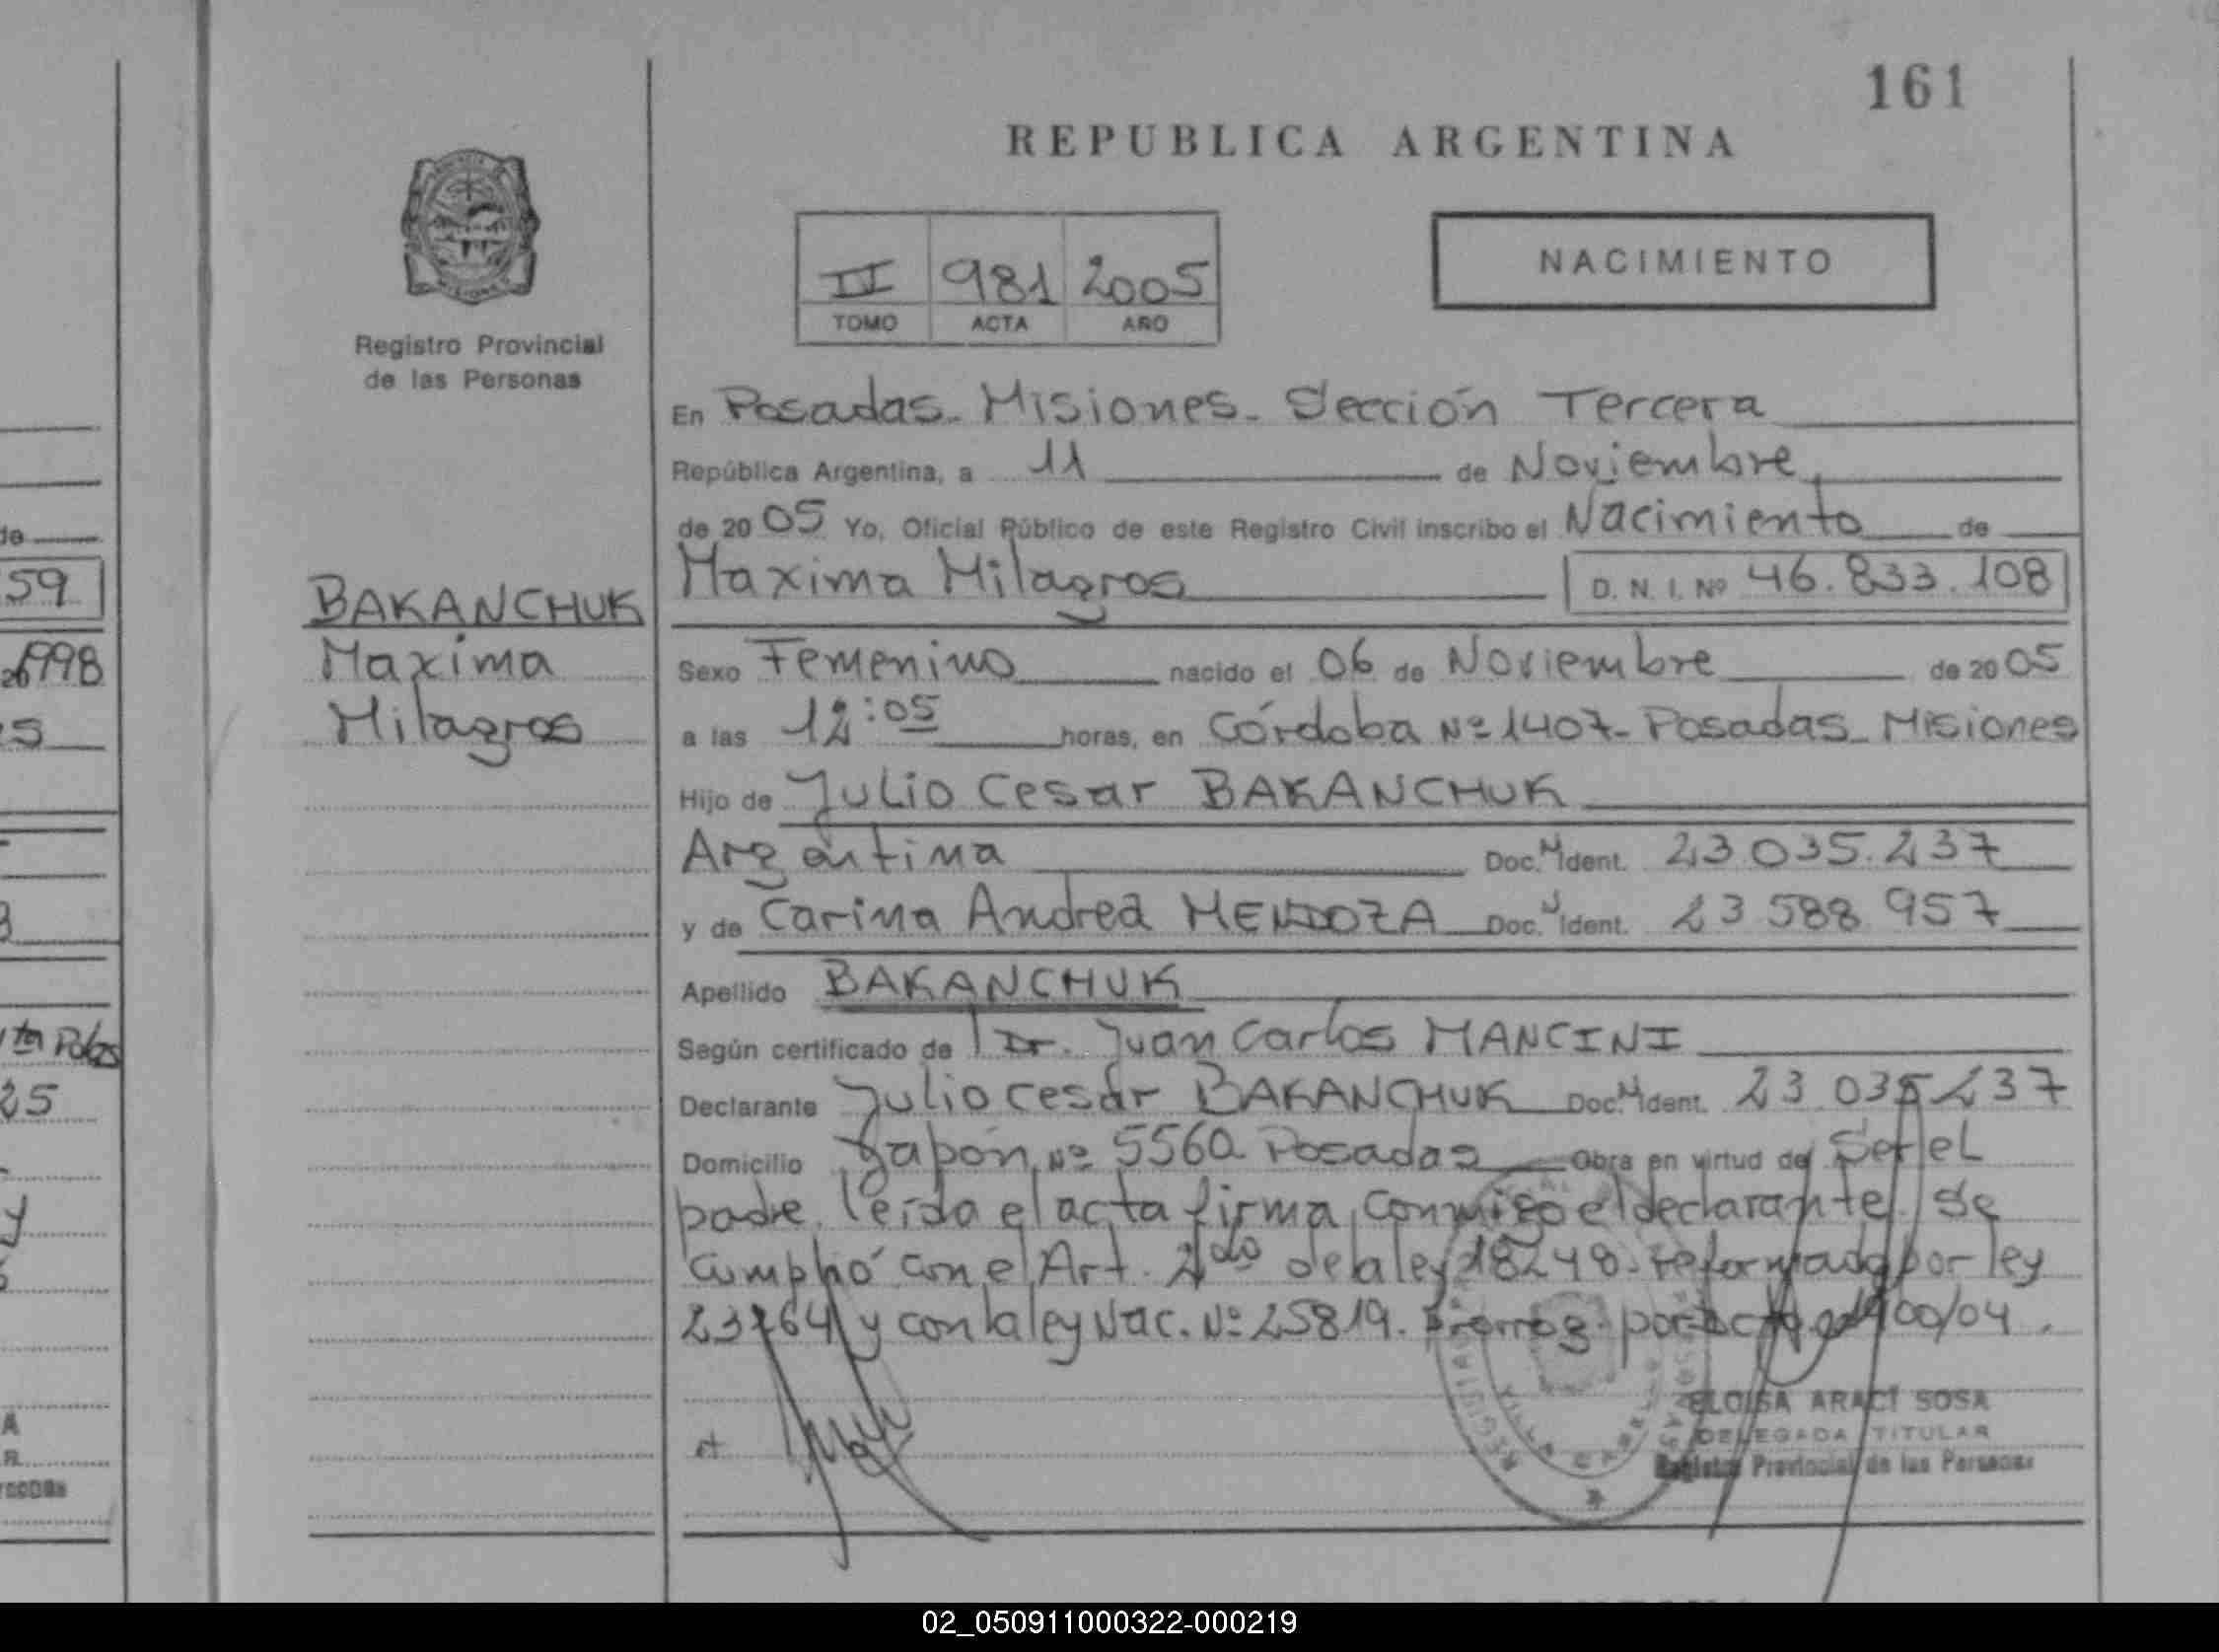 161
REPUBLICA ARGENTINA
II 981 2005
TOMO ACTA AÑO
NACIMIENTO
Registro Provincial
de las Personas
BAKANCHUK
Maxima
Milagros
En Posadas - Misiones - Sección Tercera
República Argentina, a 11 de Noviembre
de 2005 Yo, Oficial Público de este Registro Civil inscribo el Nacimiento de
Maxima Milagros D. N. I. Nº 46.833.108
Sexo Femenino nacido el 06 de Noviembre de 2005
a las 12:05 horas, en Córdoba Nº 1407 - Posadas - Misiones
Hijo de Julio Cesar BAKANCHUK
Argentina Doc. N Ident. 23 035.237
y de Carina Andrea MENDOZA Doc. Ident. 23 588 957
Apellido BAKANCHUK
Según certificado de Dr. Juan Carlos MANCINI
Declarante Julio Cesar BAKANCHUK Doc. N Ident. 23 035 237
Domicilio Japón Nº 5560 Posadas Obra en virtud de Ser el
padre. leída el acta firma conmigo el declarante. Se
cumplió con el Art. 2do de la ley 18248. reformada por ley
23264 y con la ley Nac. Nº 25819. por 1400/04.
ELOISA ARACI SOSA
DELEGADA TITULAR
Registro Provincial de las Personas
59
998
25
02_050911000322-000219